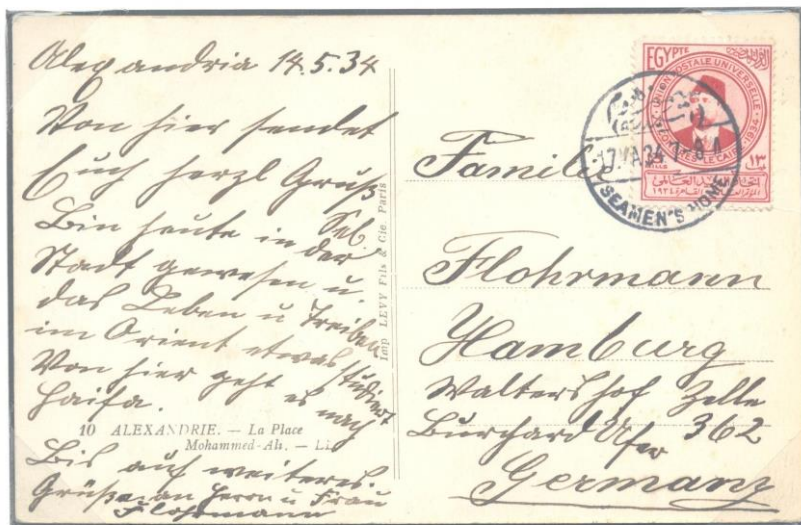 Alexandria 14.5.34
Von hier sendet
Euch herzl Gruß
Seb.
Bin heute in der
Stadt gewesen u.
das Leben u Treiben
im Orient etwas studiert
Von hier geht es nach
Haifa.
10 ALEXANDRIE. — La Place
Mohammed-Ali. — LL.
Bis auf weiteres.
Grüße an Herrn u Frau
Flohrmann
Imp LEVY Fils & Cie. Paris
EGYPTE
UNION POSTALE UNIVERSELLE
LE CAIRE 1934
١٣
١٩٣٤
SEAMEN'S HOME
Familie
Flohrmann
Hamburg
Waltershof Zelle
Burchard Ufer 362
Germany